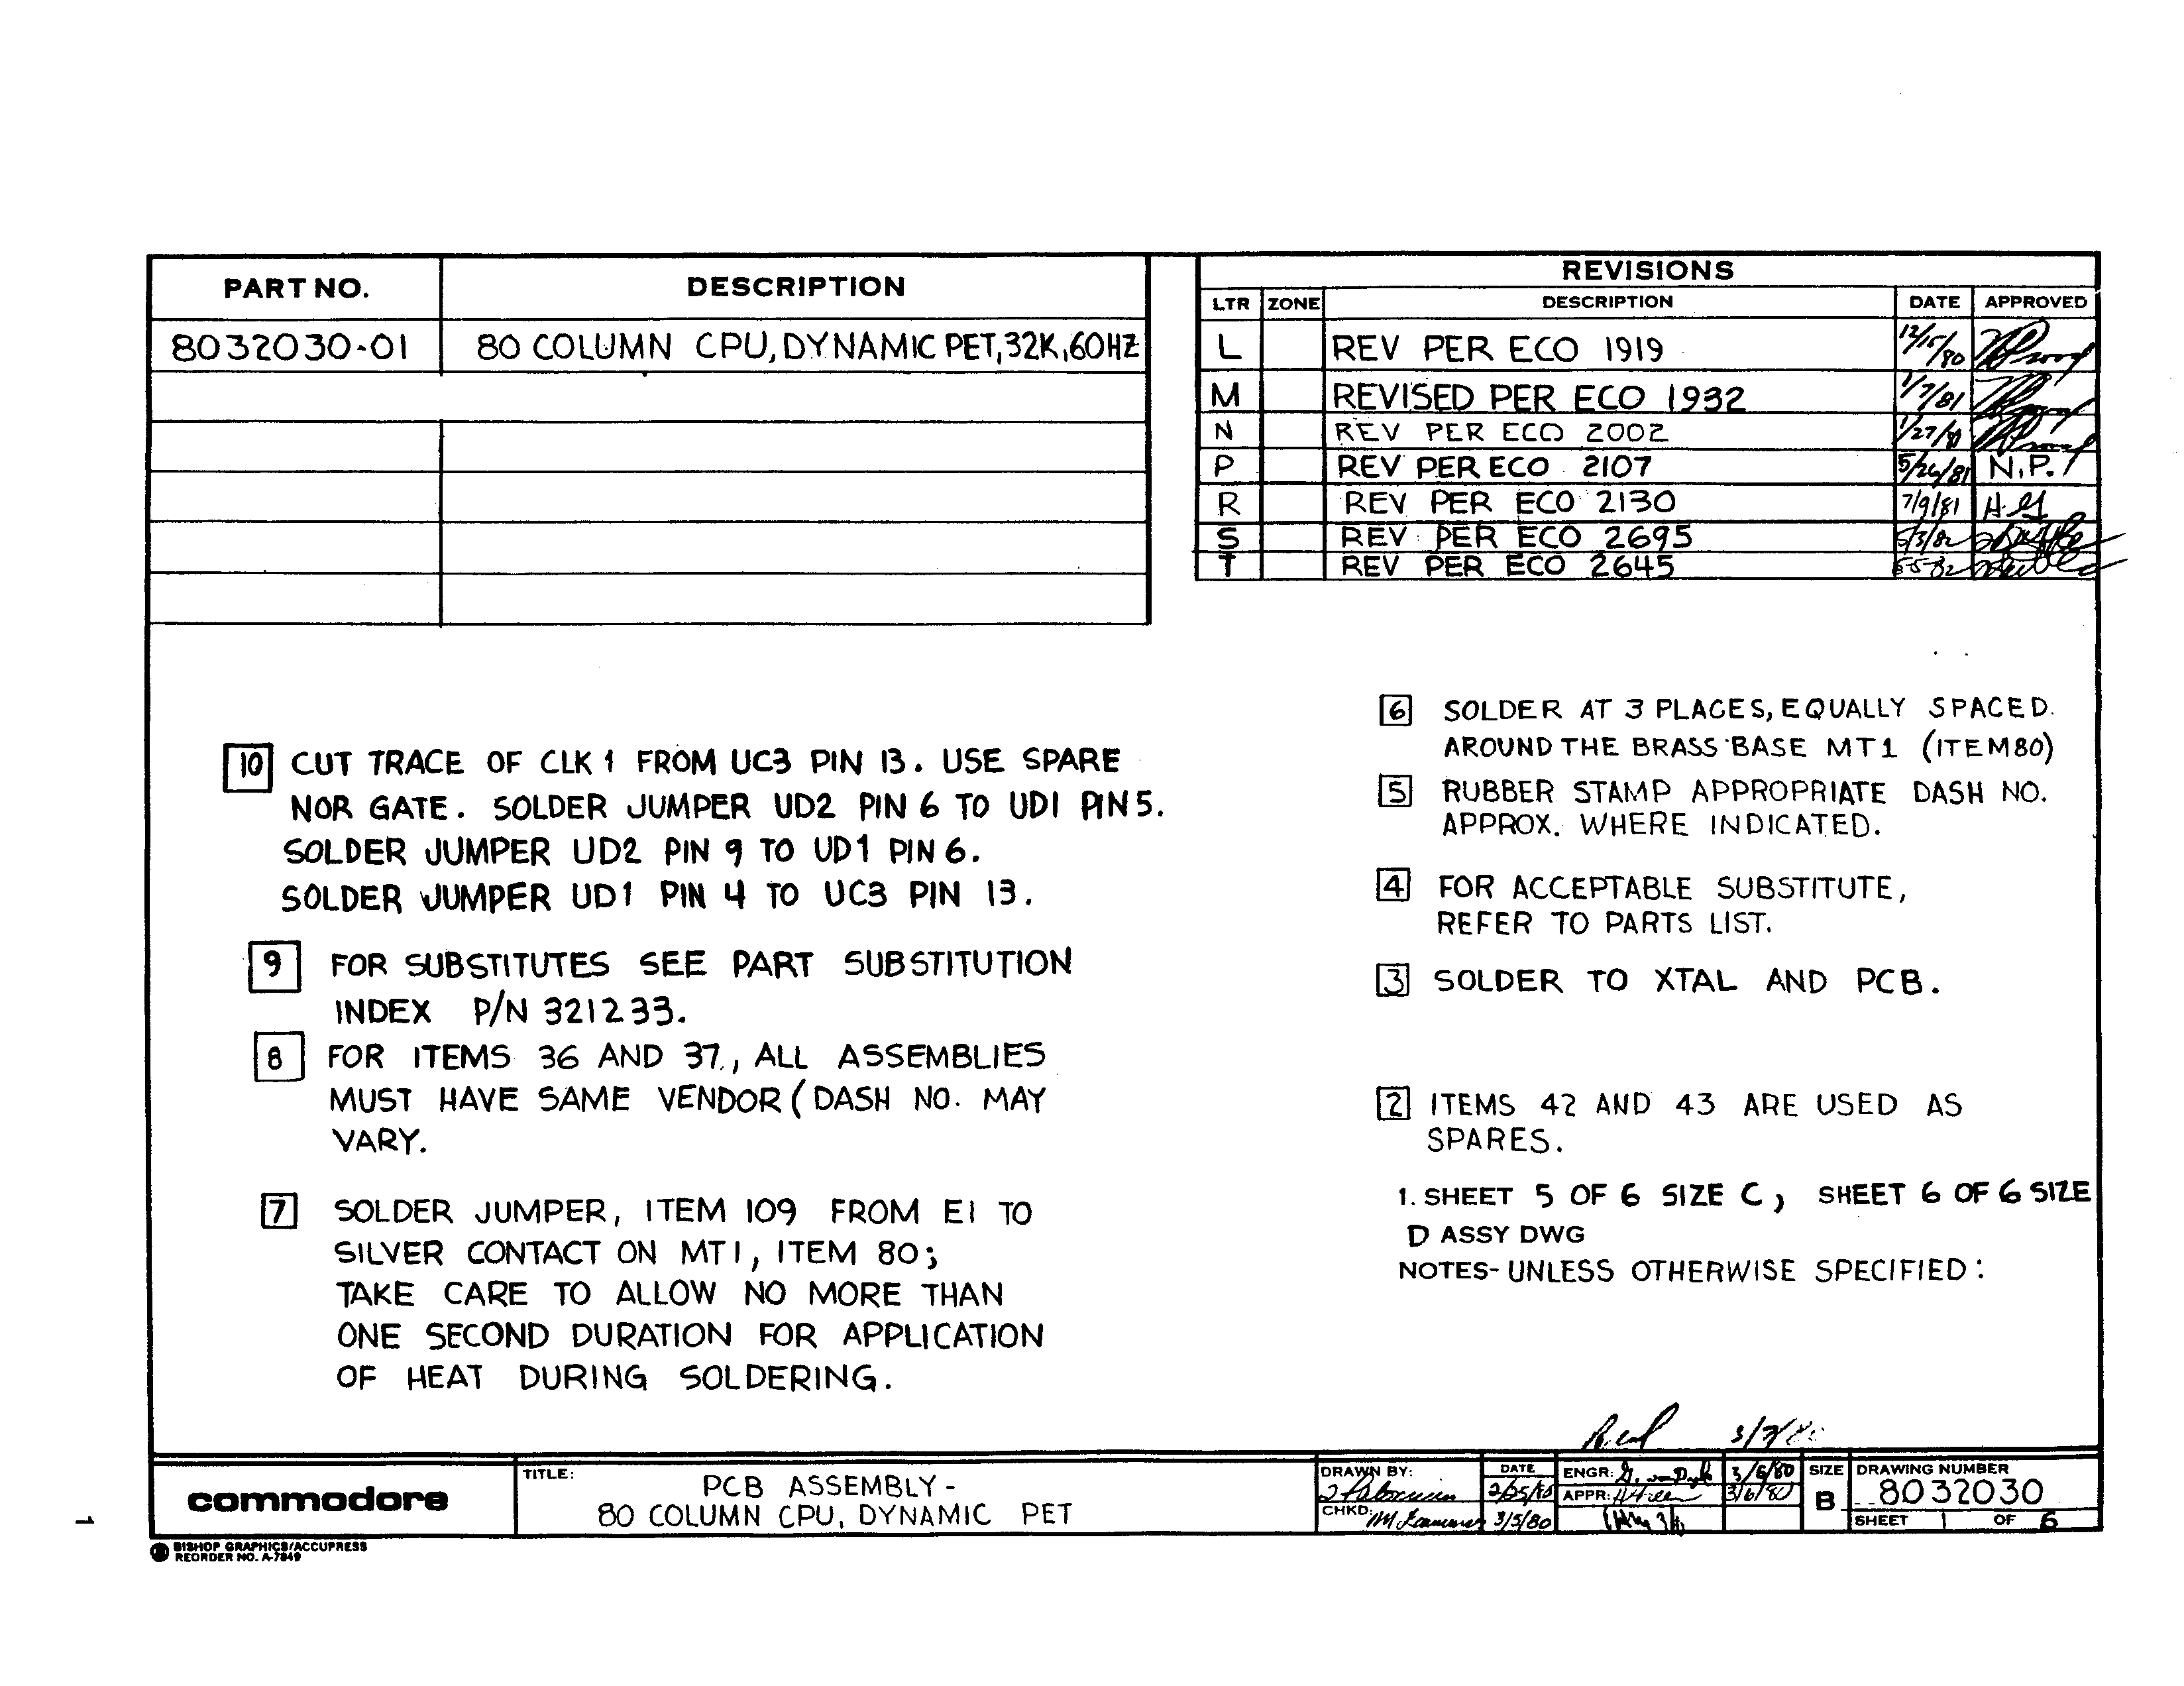 PART NO. DESCRIPTION
8032030-01 80 COLUMN CPU, DYNAMIC PET, 32K, 60HZ
REVISIONS
LTR ZONE DESCRIPTION DATE APPROVED
L REV PER ECO 1919 12/15/80
M REVISED PER ECO 1932 1/7/81
N REV PER ECO 2002
P REV PER ECO 2107 5/26/81 N.P.
R REV PER ECO 2130 7/9/81
S REV PER ECO 2695 5/3/82
T REV PER ECO 2645
10 CUT TRACE OF CLK 1 FROM UC3 PIN 13. USE SPARE
NOR GATE. SOLDER JUMPER UD2 PIN 6 TO UD1 PIN 5.
SOLDER JUMPER UD2 PIN 9 TO UD1 PIN 6.
SOLDER JUMPER UD1 PIN 4 TO UC3 PIN 13.
9 FOR SUBSTITUTES SEE PART SUBSTITUTION
INDEX P/N 321233.
8 FOR ITEMS 36 AND 37., ALL ASSEMBLIES
MUST HAVE SAME VENDOR (DASH NO. MAY
VARY.
7 SOLDER JUMPER, ITEM 109 FROM E1 TO
SILVER CONTACT ON MT1, ITEM 80;
TAKE CARE TO ALLOW NO MORE THAN
ONE SECOND DURATION FOR APPLICATION
OF HEAT DURING SOLDERING.
6 SOLDER AT 3 PLACES, EQUALLY SPACED.
AROUND THE BRASS BASE MT1 (ITEM 80)
5 RUBBER STAMP APPROPRIATE DASH NO.
APPROX. WHERE INDICATED.
4 FOR ACCEPTABLE SUBSTITUTE,
REFER TO PARTS LIST.
3 SOLDER TO XTAL AND PCB.
2 ITEMS 42 AND 43 ARE USED AS
SPARES.
1. SHEET 5 OF 6 SIZE C, SHEET 6 OF 6 SIZE
D ASSY DWG
NOTES- UNLESS OTHERWISE SPECIFIED:
commodore
TITLE:
PCB ASSEMBLY -
80 COLUMN CPU, DYNAMIC PET
DRAWN BY: DATE 2/25/80
CHKD: 3/5/80
ENGR: 3/6/80
APPR: 3/6/80
SIZE
B
DRAWING NUMBER
8032030
SHEET 1 OF 6
BISHOP GRAPHICS/ACCUPRESS
REORDER NO. A-7849
1